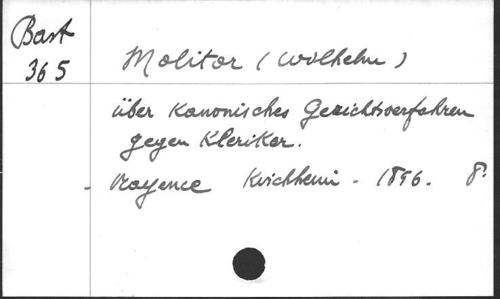 Bast
365
Molitor (Wilhelm)
über Kanonisches Gerichtsverfahren
gegen Kleriker.
Mayence Kirchheim - 1856. 8°